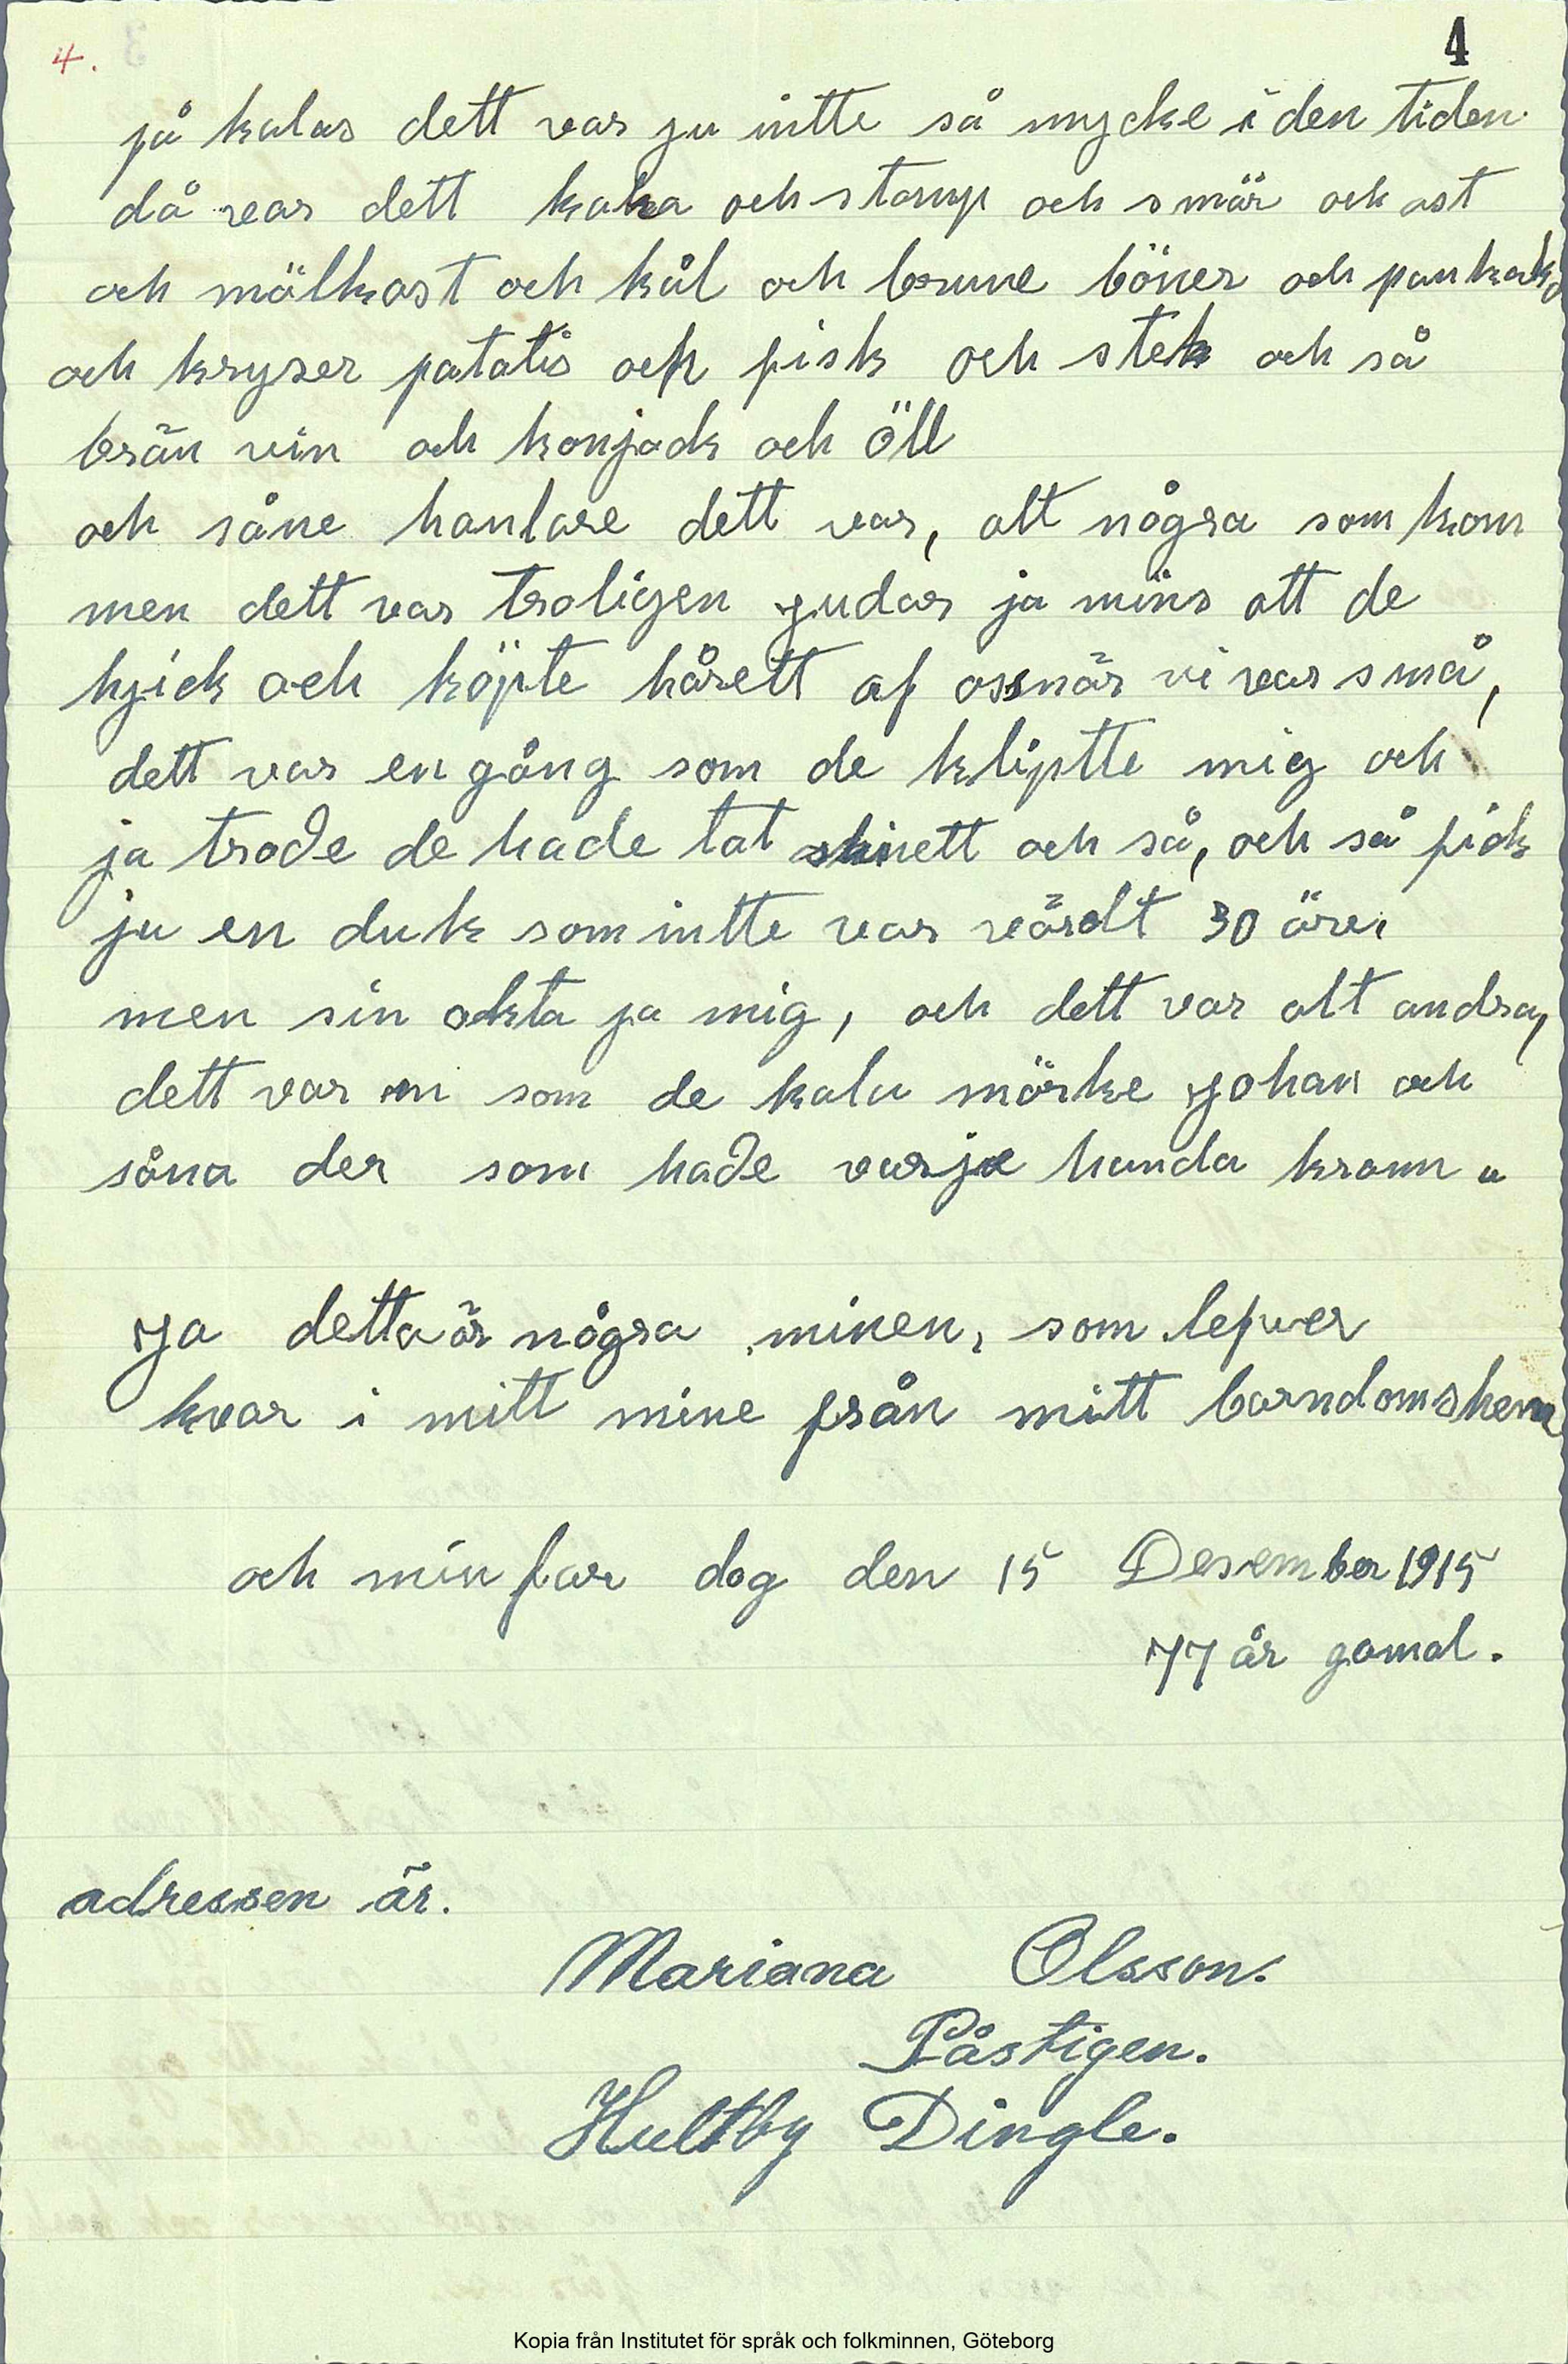 4. 4
på kalas dett var ju intte så mycke i den tiden
då var dett kaka och stomp och smär och ost
och mölkost och kål och brune böner och pankack,
och kryser patatis och fisk och stek och så
brän vin och konjack och öll
och såne hanlare dett var, att några som kom
men dett var troligen judar ja mins att de
kjick och köpte hårett af oss när vi var små,
dett var en gång som de kliptte mig och
ja trode de hade tat skinett och så, och så fick
ju en duk som intte var värdt 30 öre,
men sin ackta ja mig, och dett var alt andra,
dett var en som de kala mörke Johan och
såna der som hade varje handa kram.
Ja detta är några minen, som lefver
kvar i mitt mine från mitt barndomshem
och min far dog den 15 Desember 1915
77 år gamal.
adressen är.
Mariana Olsson.
Påstigen.
Hultby Dingle.
Kopia från Institutet för språk och folkminnen, Göteborg